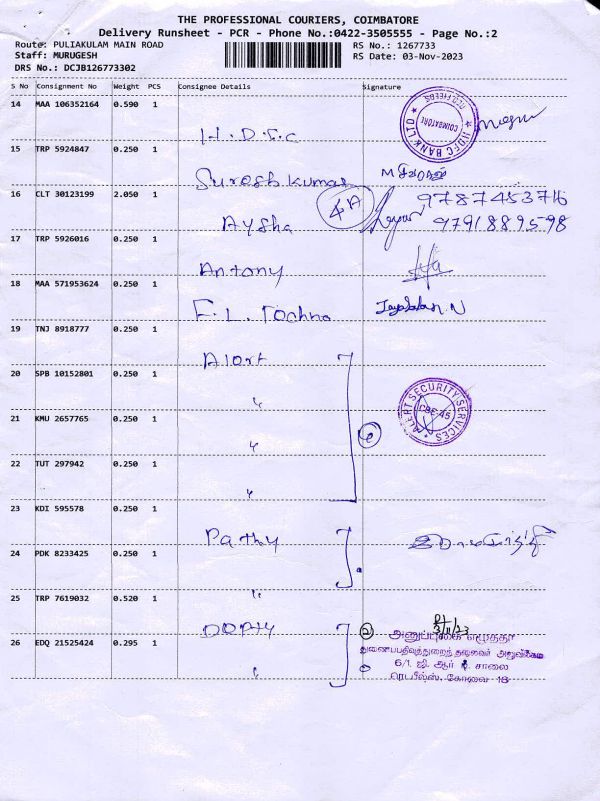 THE PROFESSIONAL COURIERS, COIMBATORE
Delivery Runsheet - PCR - Phone No.:0422-3505555 - Page No.:2
Route: PULIAKULAM MAIN ROAD
RS No.: 1267733
Staff: MURUGESH
RS Date: 03-Nov-2023
DRS No.: DCJB126773302
S No Consignment No Weight PCS Consignee Details Signature
14 MAA 106352164 0.590 1
H.D.F.C
HDFC BANK LTD
COIMBATORE
RED FIELDS
15 TRP 5924847 0.250 1
Suresh kumar
16 CLT 30123199 2.050 1
Aysha
9787453716
9791889598
17 TRP 5926016 0.250 1
Antony
18 MAA 571953624 0.250 1
F.L. Techno
19 TNJ 8918777 0.250 1
Alert
20 SPB 10152801 0.250 1
"
ALERT SECURITY SERVICES
CBE-45
21 KMU 2657765 0.250 1
"
22 TUT 297942 0.250 1
"
23 KDI 595578 0.250 1
Pathy
24 PDK 8233425 0.250 1
"
25 TRP 7619032 0.520 1
DOPTY
3/11/23
அனுப்புகை எழுத்தர்
துணைப்பதிவுத்துறைத் தலைவர் அலுவலகம்
26 EDQ 21525424 0.295 1
"
6/1. ஜி. ஆர் சாலை
ரெட்பீல்ஸ், கோவை 18